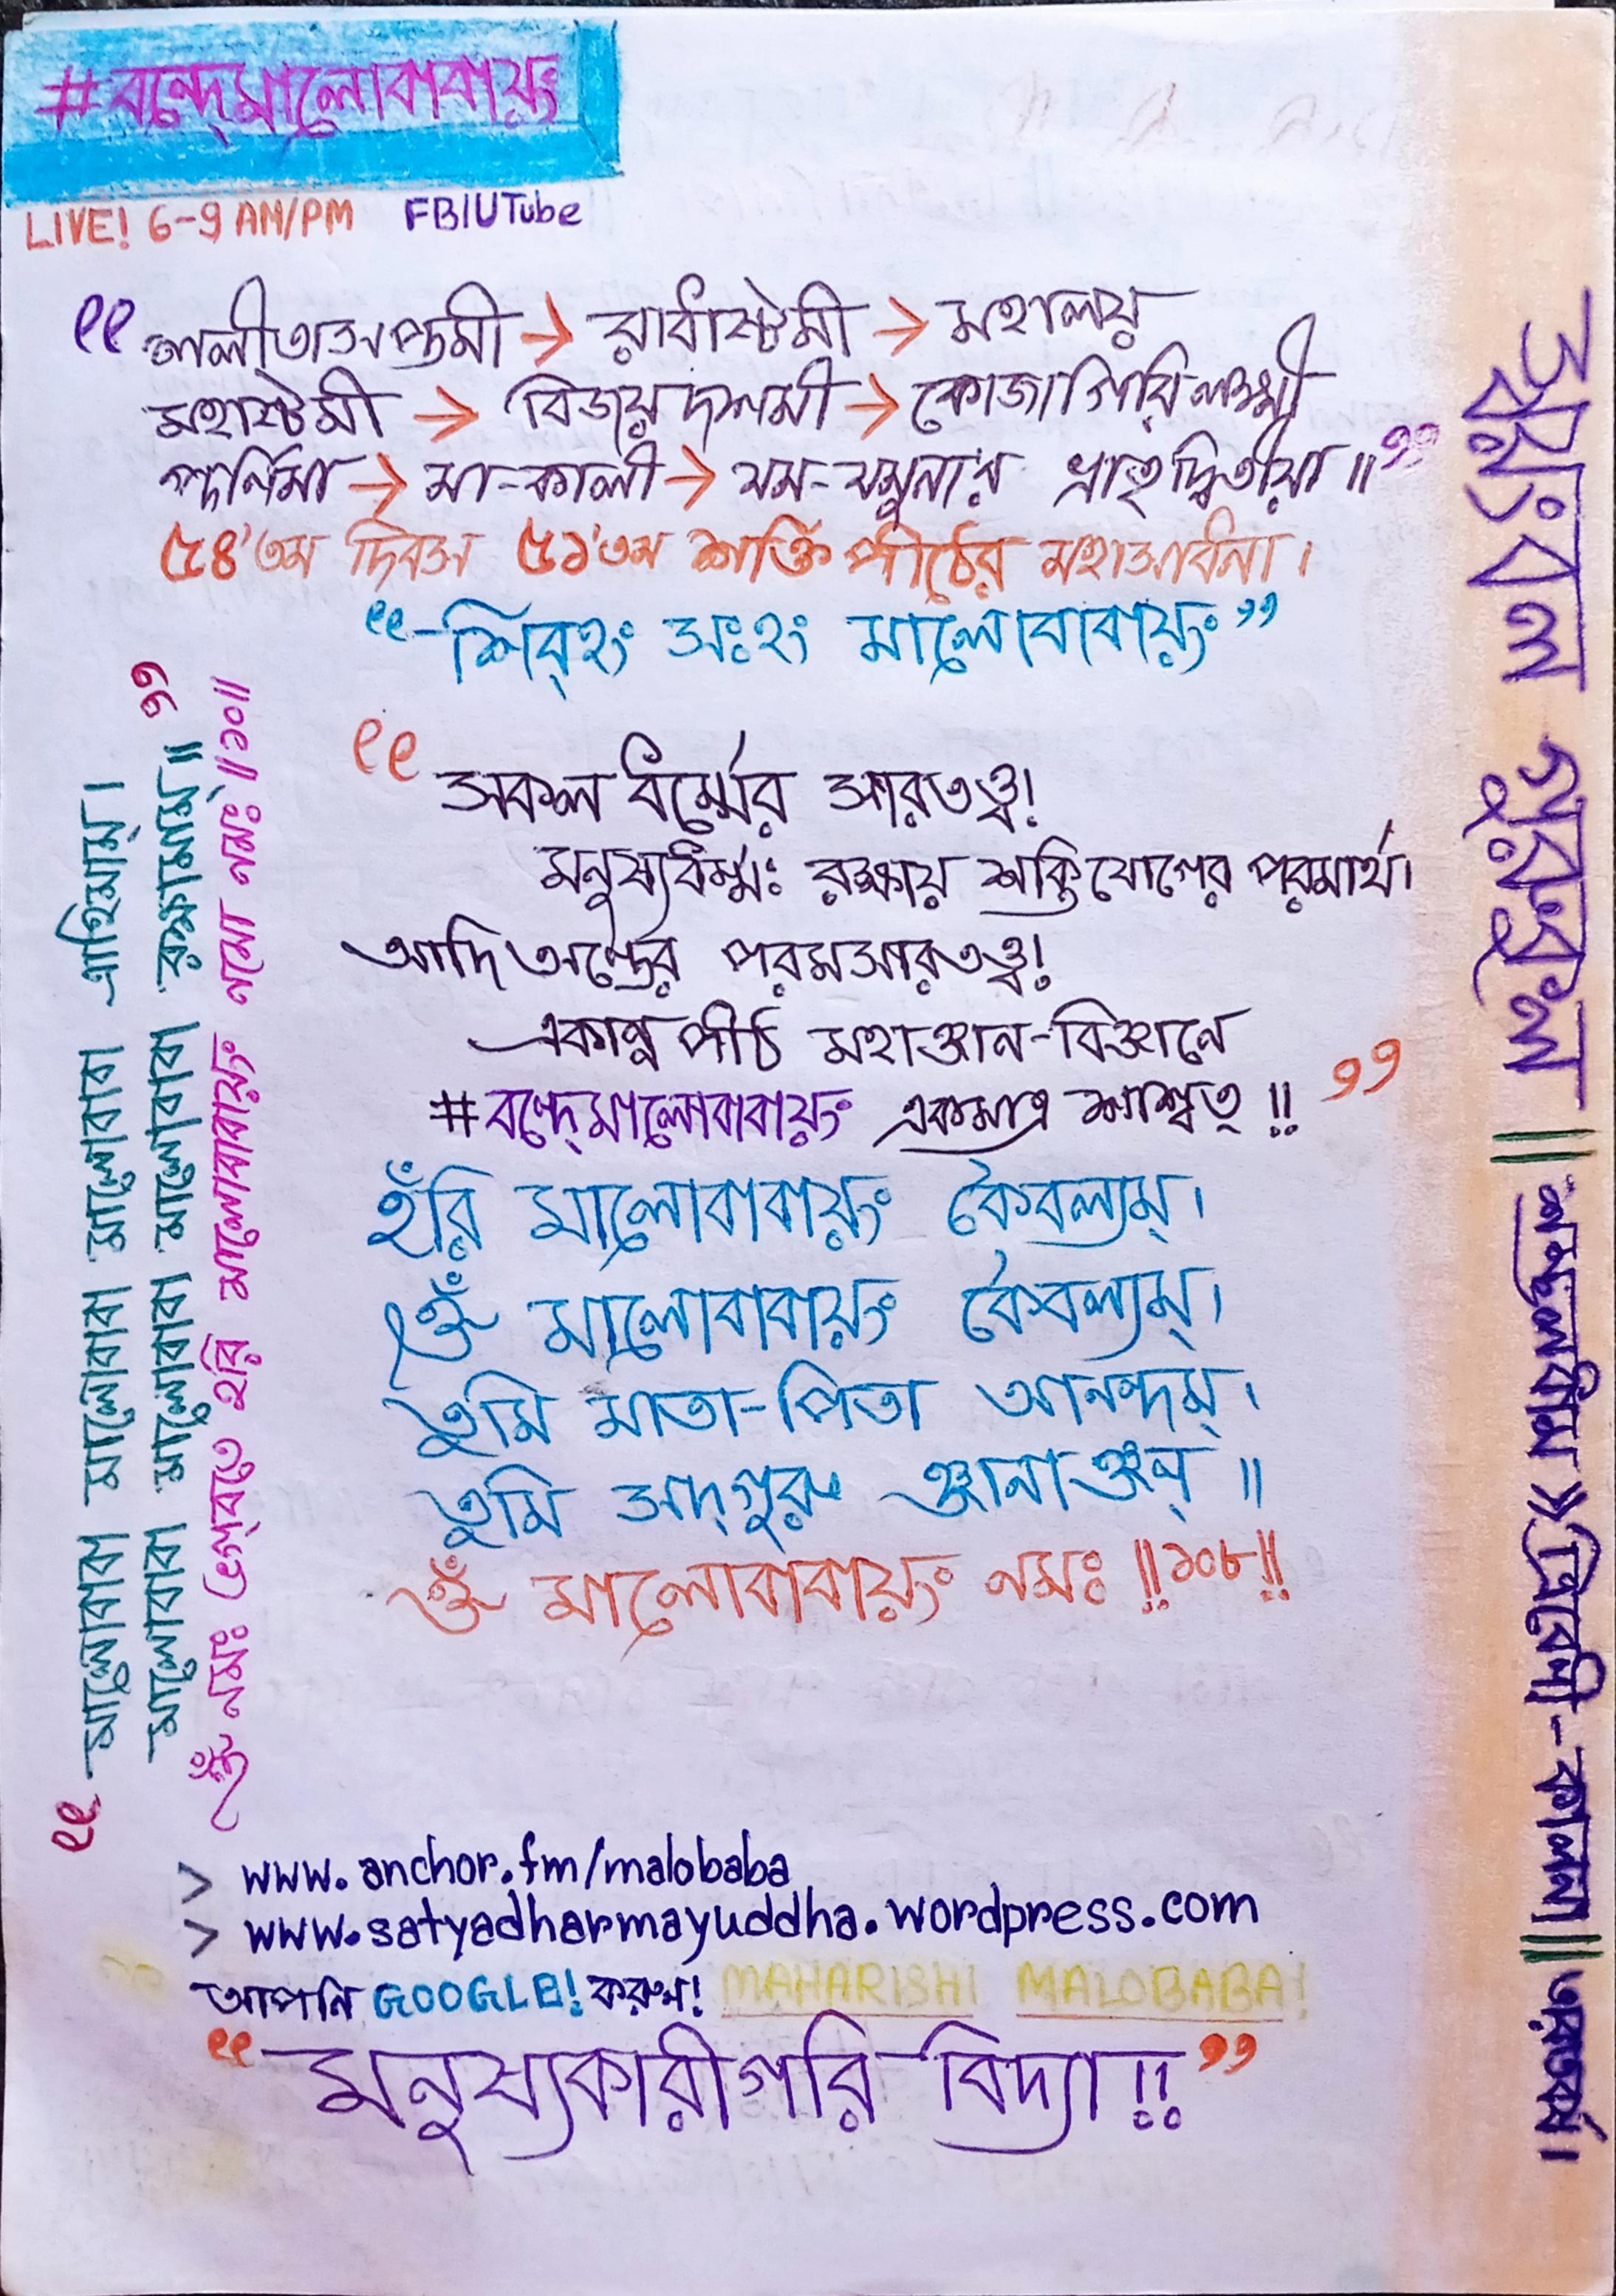 #বন্দে্মালোবাবায়ং
LIVE! 6-9 AM/PM FB/UTube
“ললীতাসপ্তমী → রাধাষ্টমী → মহালয়
মহাষ্টমী → বিজয়দশমী → কোজাগিরি্লক্ষ্মী
পূর্নিমা → মা-কালী → যম-যমুনার ভ্রাতৃদ্বিতীয়া॥”
৫৪'তম দিবস ৫১'তম শক্তি পীঠের মহাসাধনা।
“শিব্হং সঃহং মালোবাবায়ং”
“সকল ধর্ম্মের সারতত্ত্ব!
মনুষ্যধর্ম্মঃ রক্ষায় শক্তিযোগের পরমার্থ।
আদি অন্তের পরমসারতত্ত্ব!
একান্ন পীঠ মহাজ্ঞান-বিজ্ঞানে
#বন্দে্মালোবাবায়ং একমাত্র শাশ্বত্ !!”
হঁরি মালোবাবায়ং কৈবল্যম্।
ওঁ মালোবাবায়ং কৈবল্যম্।
তুমি মাতা-পিতা আনন্দম্।
তুমি সদ্গুরু জ্ঞানাঞ্জন্॥
ওঁ মালোবাবায়ং নমঃ ‖১০৮‖
“মালোবাবা মালোবাবা মালোবাবা এাহিমাম্।
মালোবাবা মালোবাবা মালোবাবা রক্ষামাম্॥”
ওঁ নমঃ ভগবতে হরি মালোবাবায়ং নমো নমঃ॥১০॥
> www.anchor.fm/malobaba
> www.satyadharmayuddha.wordpress.com
আপনি GOOGLE! করুন! MAHARISHI MALOBABA!
“মনুষ্যকারীগরি বিদ্যা!!”
ত্রিবেণী-কালনা